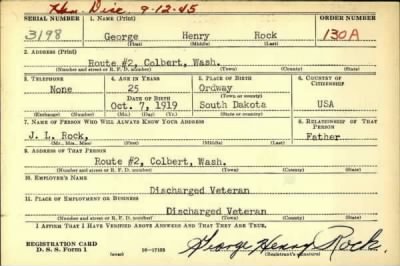 Hon. Disc. 9-12-45
SERIAL NUMBER 1. NAME (Print) ORDER NUMBER
3198 George Henry Rock 130A
(First) (Middle) (Last)
2. ADDRESS (Print)
Route #2, Colbert, Wash.
(Number and street or R. F. D. number) (Town) (County) (State)
3. TELEPHONE 4. AGE IN YEARS 5. PLACE OF BIRTH 6. COUNTRY OF CITIZENSHIP
None 25 Ordway
DATE OF BIRTH (Town or county)
Oct. 7, 1919 South Dakota USA
(Exchange) (No.) (Mo.) (Day) (Yr.) (State or country)
7. NAME OF PERSON WHO WILL ALWAYS KNOW YOUR ADDRESS 8. RELATIONSHIP OF THAT PERSON
J. L. Rock, Father
(Mr., Mrs., Miss) (First) (Middle) (Last)
9. ADDRESS OF THAT PERSON
Route #2, Colbert, Wash.
(Number and street or R. F. D. number) (Town) (County) (State)
10. EMPLOYER'S NAME
Discharged Veteran
11. PLACE OF EMPLOYMENT OR BUSINESS
Discharged Veteran
(Number and street or R. F. D. number) (Town) (County) (State)
I AFFIRM THAT I HAVE VERIFIED ABOVE ANSWERS AND THAT THEY ARE TRUE.
REGISTRATION CARD
D. S. S. Form 1 (over) 16-17105 George Henry Rock
(Registrant's signature)